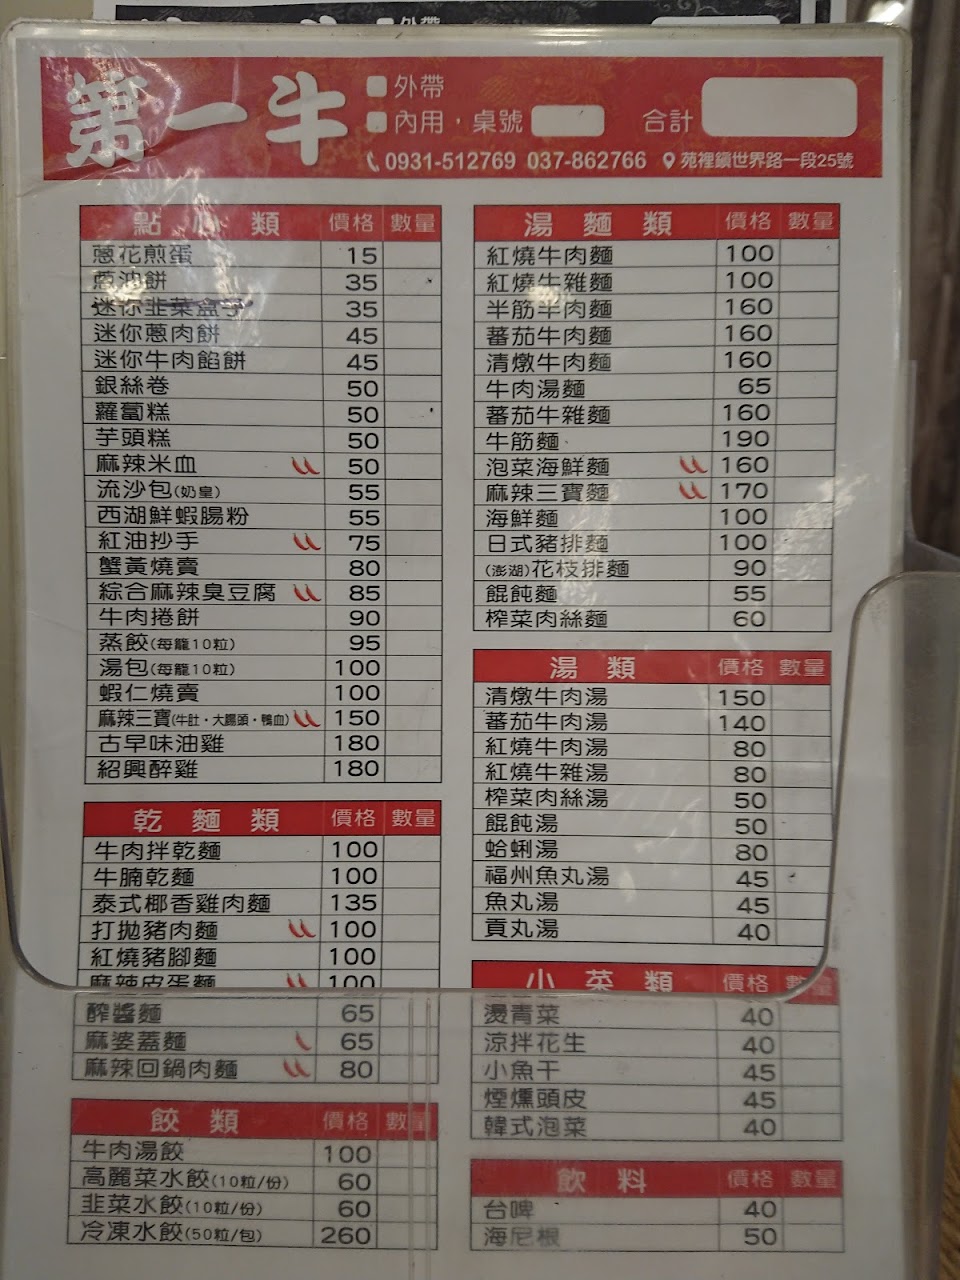 外帶
第一牛
外帶
內用・桌號
合計
0931-512769 037-862766 苑裡鎮世界路一段25號
點心類 價格 數量
蔥花煎蛋 15
蔥油餅 35
迷你韭菜盒子 35
迷你蔥肉餅 45
迷你牛肉餡餅 45
銀絲卷 50
蘿蔔糕 50
芋頭糕 50
麻辣米血 50
流沙包(奶皇) 55
西湖鮮蝦腸粉 55
紅油抄手 75
蟹黃燒賣 80
綜合麻辣臭豆腐 85
牛肉捲餅 90
蒸餃(每籠10粒) 95
湯包(每籠10粒) 100
蝦仁燒賣 100
麻辣三寶(牛肚・大腸頭・鴨血) 150
古早味油雞 180
紹興醉雞 180
乾麵類 價格 數量
牛肉拌乾麵 100
牛腩乾麵 100
泰式椰香雞肉麵 135
打拋豬肉麵 100
紅燒豬腳麵 100
麻辣皮蛋麵 100
醡醬麵 65
麻婆蓋麵 65
麻辣回鍋肉麵 80
餃類 價格 數量
牛肉湯餃 100
高麗菜水餃(10粒/份) 60
韭菜水餃(10粒/份) 60
冷凍水餃(50粒/包) 260
湯麵類 價格 數量
紅燒牛肉麵 100
紅燒牛雜麵 100
半筋半肉麵 160
蕃茄牛肉麵 160
清燉牛肉麵 160
牛肉湯麵 65
蕃茄牛雜麵 160
牛筋麵 190
泡菜海鮮麵 160
麻辣三寶麵 170
海鮮麵 100
日式豬排麵 100
(澎湖)花枝排麵 90
餛飩麵 55
榨菜肉絲麵 60
湯類 價格 數量
清燉牛肉湯 150
蕃茄牛肉湯 140
紅燒牛肉湯 80
紅燒牛雜湯 80
榨菜肉絲湯 50
餛飩湯 50
蛤蜊湯 80
福州魚丸湯 45
魚丸湯 45
貢丸湯 40
小菜類 價格 數量
燙青菜 40
涼拌花生 40
小魚干 45
煙燻頭皮 45
韓式泡菜 40
飲料 價格 數量
台啤 40
海尼根 50